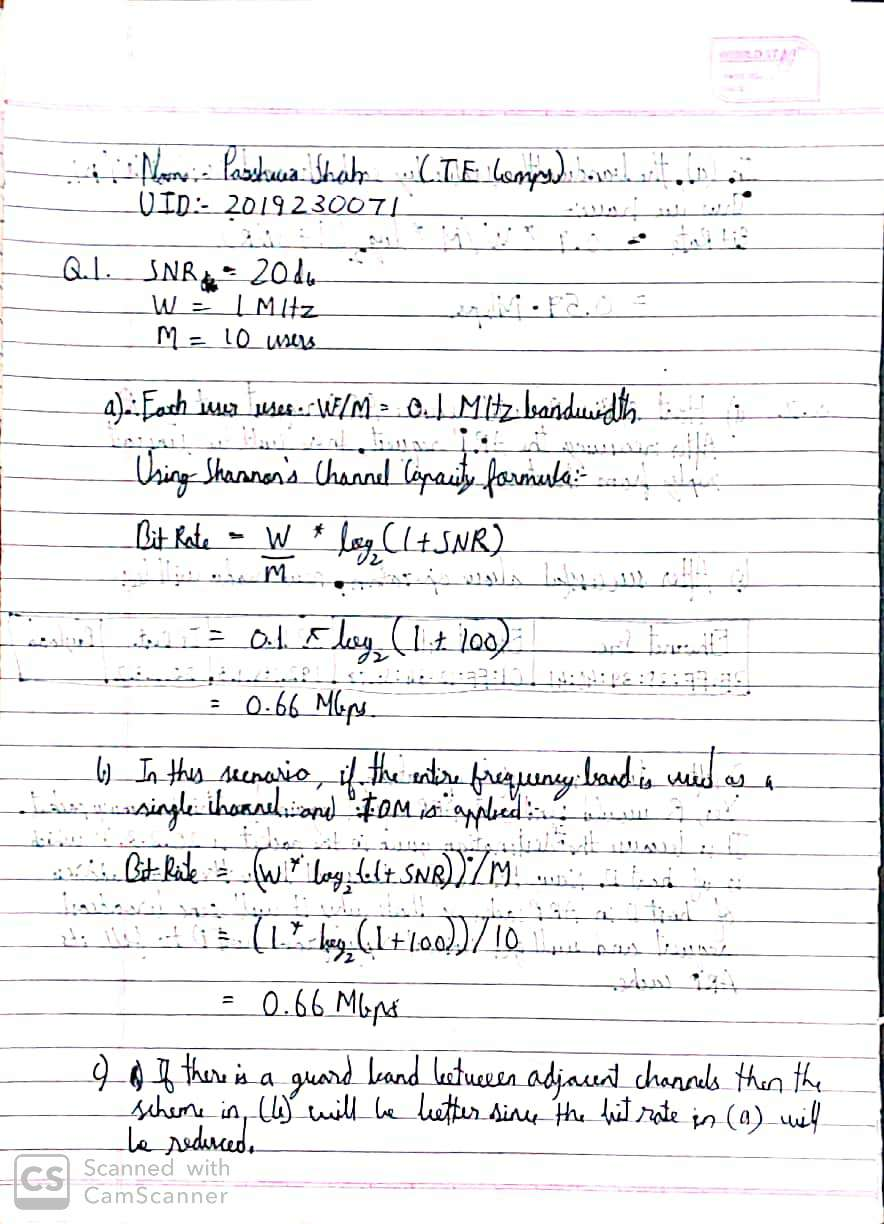 Name:- Shah (T.E Comps)
UID:- 2019230071
Q.1. SNR = 20db
W = 1 MHz
M = 10 users
a) ∴ Each user uses W/M = 0.1 MHz bandwidth.
Using Shannon's Channel Capacity formula:-
Bit Rate = W/M * log₂(1+SNR)
= 0.1 * log₂(1+100)
= 0.66 Mbps.
b) In this scenario, if the entire frequency band is used as a
single channel and "TDM is applied:
Bit Rate = (W * log₂(1+SNR))/M
= (1 * log₂(1+100))/10
= 0.66 Mbps
c) If there is a guard band between adjacent channels then the
scheme in (b) will be better since the bit rate in (a) will
be reduced.
CS
Scanned with
CamScanner